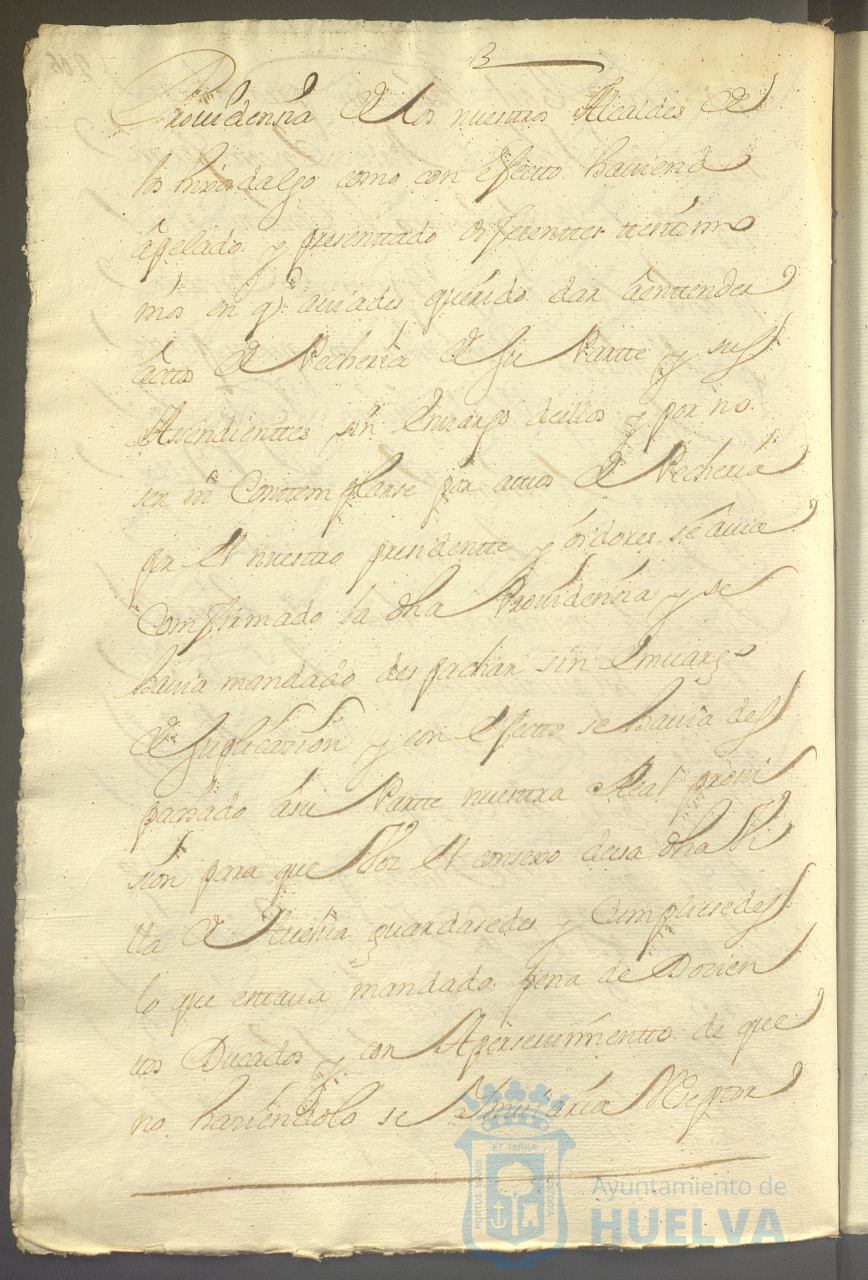 B
Providensia de los nuestros Alcaldes de
los hixosdalgo como con efecto haviendo
apelado y presenttado diferenttes testimo
nios en q.e aviades querido dar âenttender
âcttos de Pecheria de su Partte y sus
Asendienttes sin Emvargo de ellos y por no
ser ni Conttemplarse por acttos de Pecheria
por El nuestro presidentte y oidores se avia
Comfirmado la dha Providensia y se
havia mandado des pachar sin Emvargo
de Suplicasion y con efecto se havia des
pachado âsu Partte nuestra Real provi
sion para que Vos El consexo desa dha Vi
lla de Huelva guardasedes y Cumpliesedes
lo que estava mandado pena de Dozien
ttos Ducados y con Apersevimientto de que
no haziendolo se Imviaria Reseptor
PORTUS MARIS
ET TERRÆ
CUSTODIA
Ayuntamiento de
HUELVA